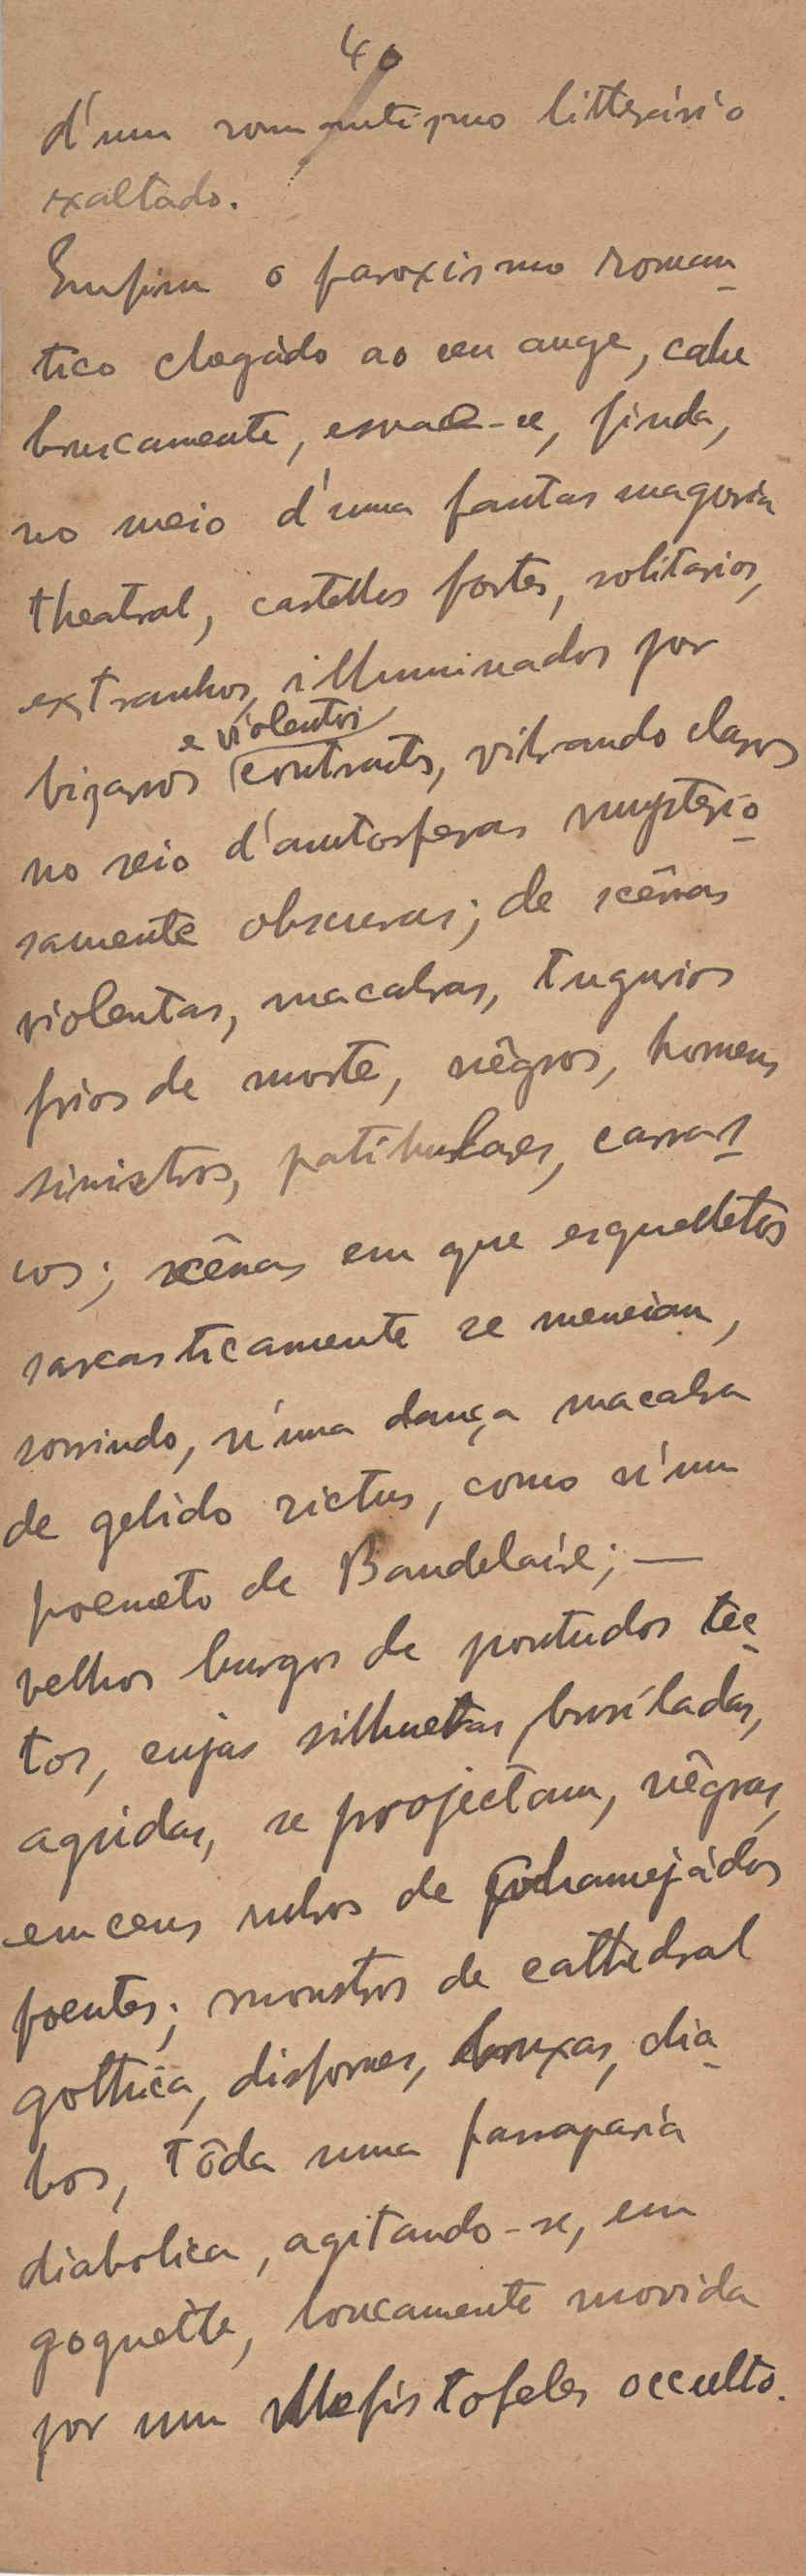 40
d'um romantismo litterário
exaltado.
Emfim o paroxismo roman-
tico chegádo ao seu auge, cahe
bruscamente, esvae-se, finda,
no meio d'uma fantasmagoria
theatral, castellos fortes, solitarios,
extranhos, illuminados por
bizarros e violentos contrastes, vibrando claros
no seio d'amtosferas mysterio-
samente obscuras; de scênas
violentas, macabras, tugurios
frios de morte, nêgros, homens
sinistros, patibulares, carras-
cos; scênas em que esquelletos
sarcasticamente se meneiam,
sorrindo, n'uma dança macabra
de gelido rictus, como n'um
poemeto de Baudelaire; —
velhos burgos de pontudos tec-
tos, cujas silhuetas, buriladas,
agudas, se projectam, nêgras,
em ceus rubros de
poentes; monstros de cathedral
gothica, disformes, bruxas, dia-
bos, tôda uma farraparia
diabolica, agitando-se, em
goguette, loucamente movida
por um Mefistofeles occulto.